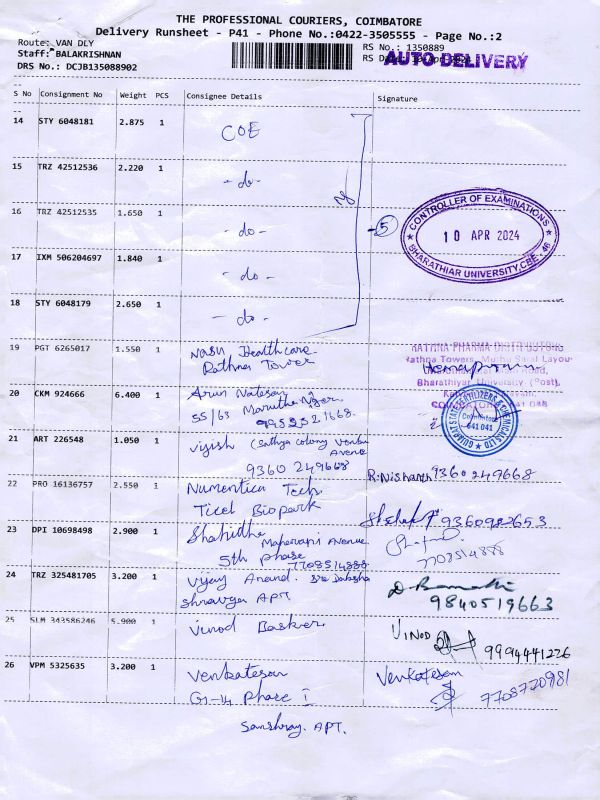 THE PROFESSIONAL COURIERS, COIMBATORE
Delivery Runsheet - P41 - Phone No.:0422-3505555 - Page No.:2
Route: VAN DLY
RS No.: 1350889
Staff: BALAKRISHNAN
RS
AUTO DELIVERY
DRS No.: DCJB135088902
S No Consignment No Weight PCS Consignee Details Signature
14 STY 6048181 2.875 1 COE
15 TRZ 42512536 2.220 1 - do -
16 TRZ 42512535 1.650 1 - do -
5
CONTROLLER OF EXAMINATIONS
10 APR 2024
BHARATHIAR UNIVERSITY, CBE - 46
17 IXM 506204697 1.840 1 - do -
18 STY 6048179 2.650 1 - do -
19 PGT 6265017 1.550 1 Healthcare
Rathna Tower
Rathna Towers,
Bharathiyar University (Post),
20 CKM 924666 6.400 1 Arun Natesan
55/63
Coimbatore
641 041
21 ART 226548 1.050 1 (Sathya colony
Avenue
9360 249668
R. Nishanth 9360 249668
22 PRO 16136757 2.550 1 Numentica Tech
Ticel Biopark
9360982653
23 DPI 10698498 2.900 1 Shahidha
Avenue
5th phase
7708514888
7708514888
24 TRZ 325481705 3.200 1 Vijay Anand.
APT
9840519663
25 SLM 343586246 5.900 1 Vinod Basker
VINOD
9994441226
26 VPM 5325635 3.200 1 Venkatesan
Venkatesan
7708720981
G1-14 Phase I
APT.